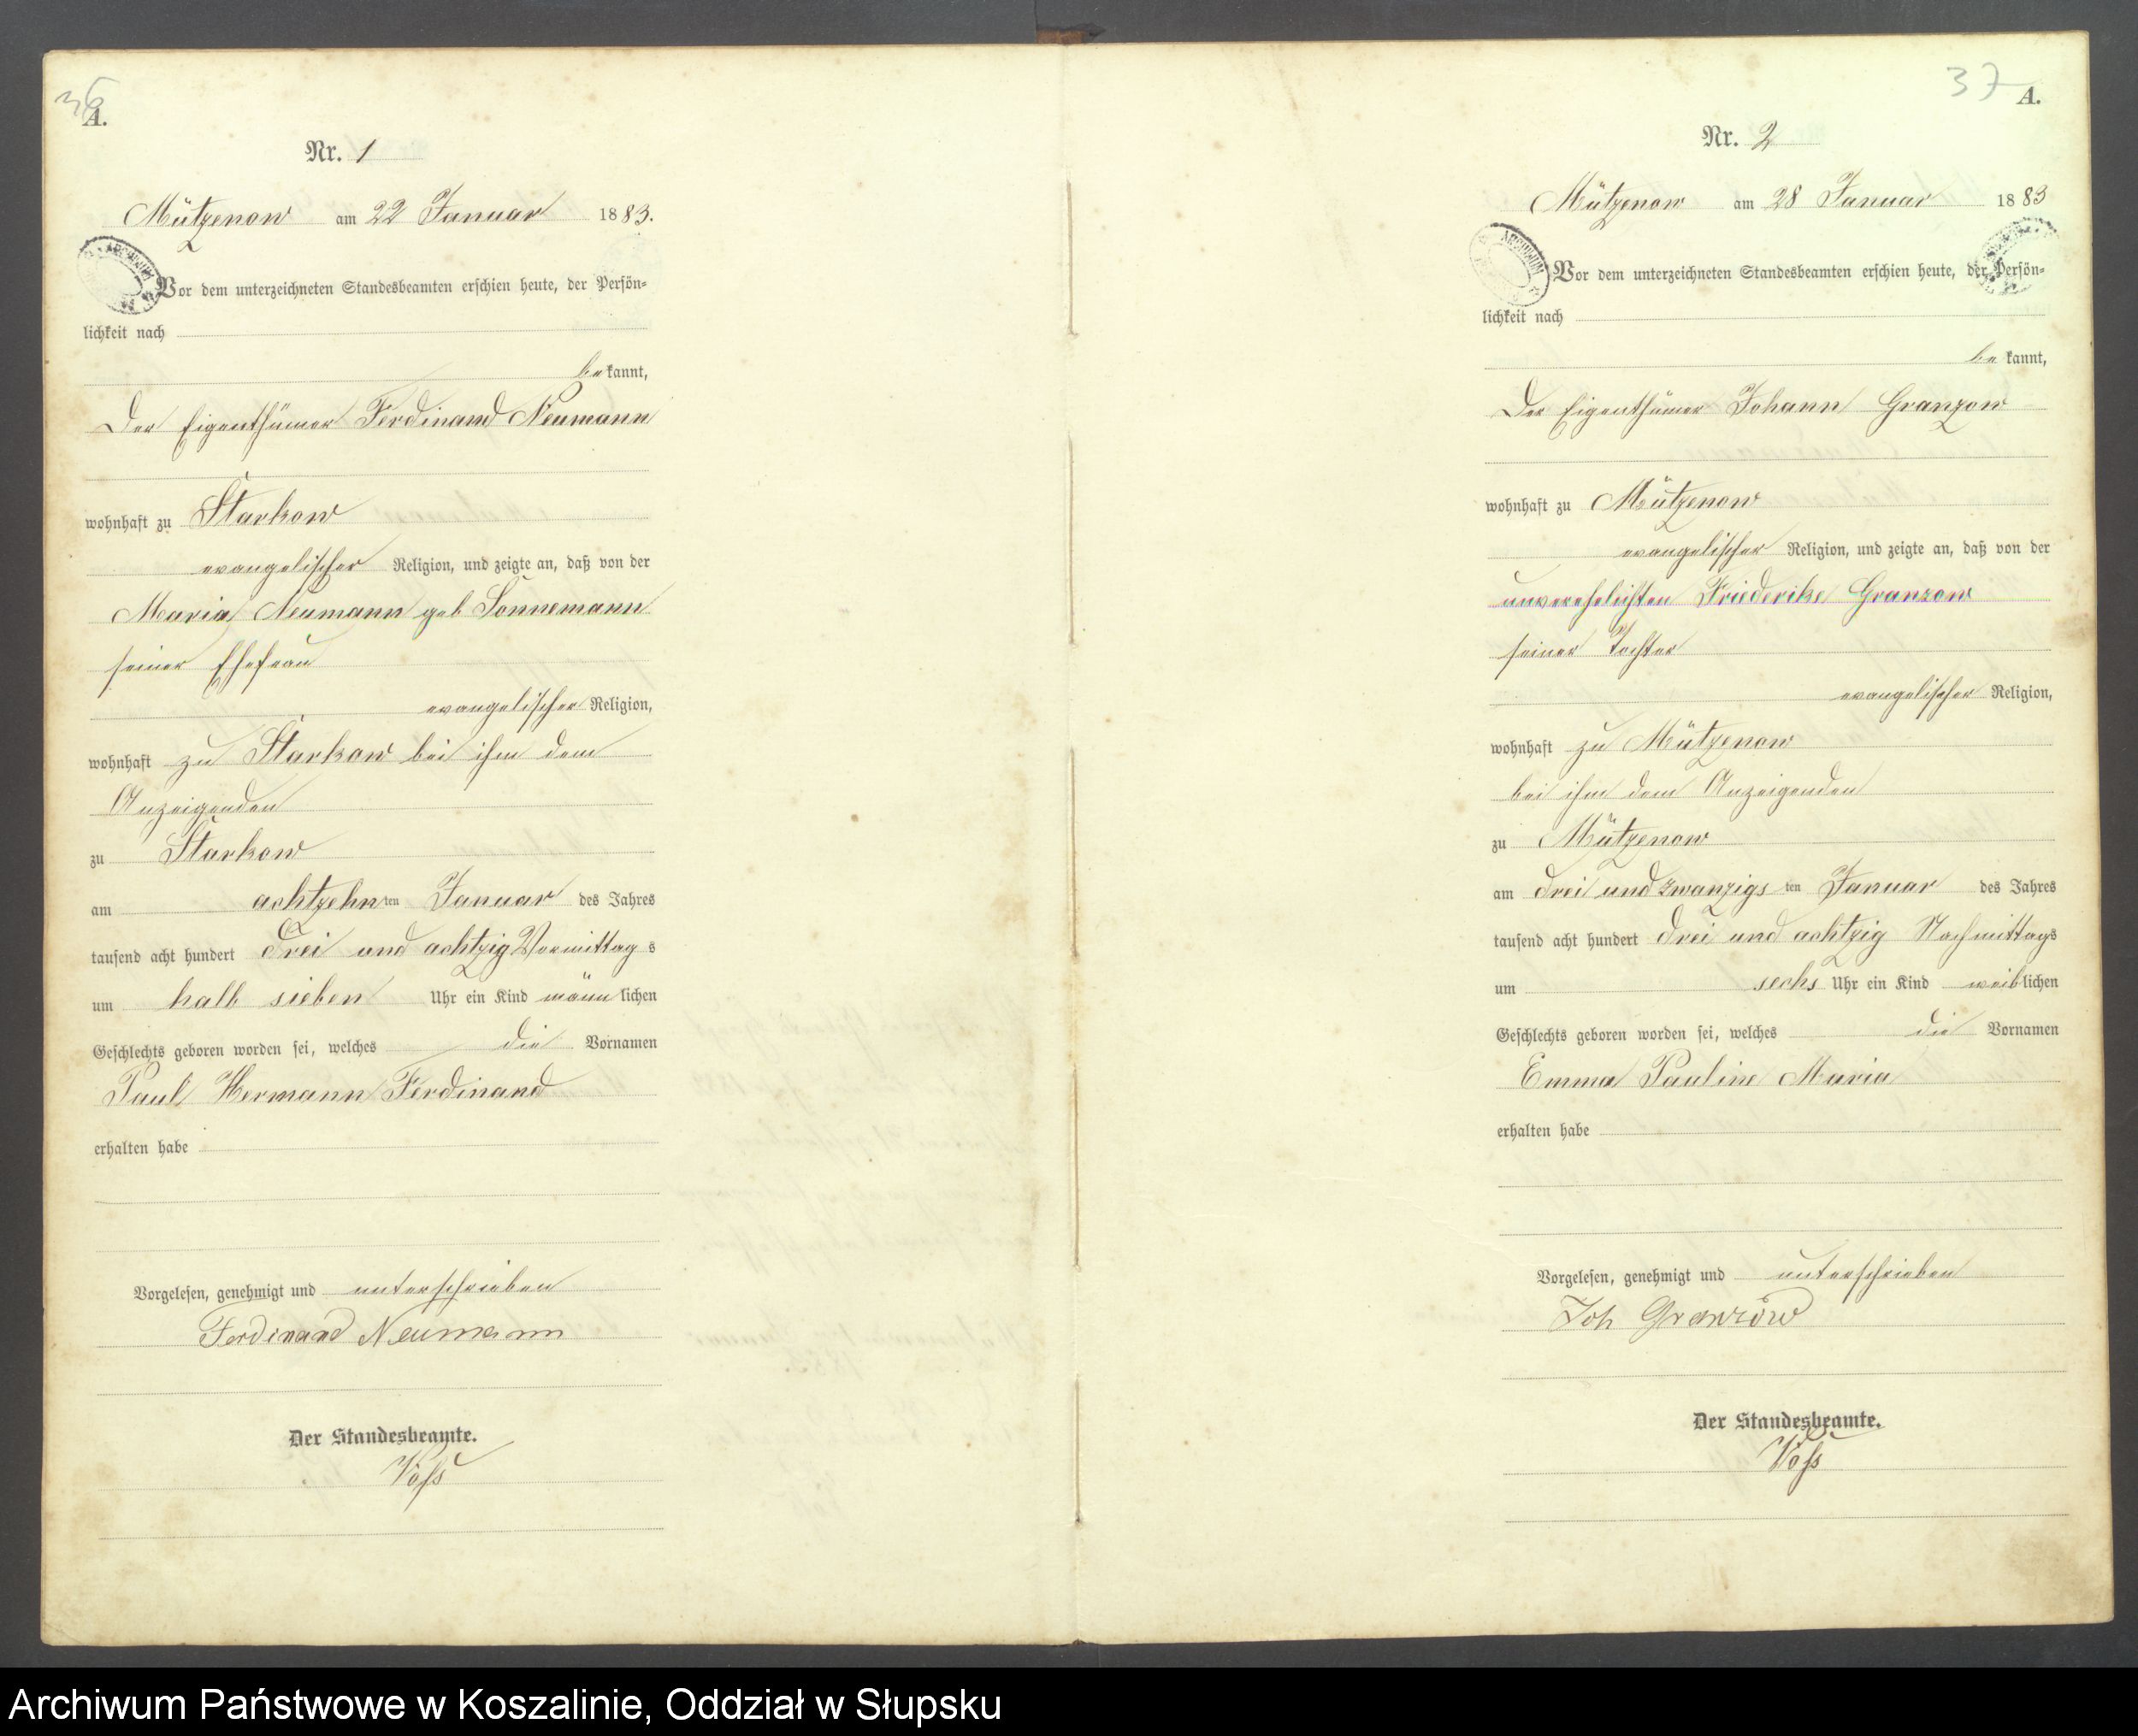 36
A.
Nr. 1
Mützenow am 22 Januar 1883.
Vor dem unterzeichneten Standesbeamten erschien heute, der Persön-
lichkeit nach
bekannt,
Der Eigenthümer Ferdinand Neumann
wohnhaft zu Starkow
evangelischer Religion, und zeigte an, daß von der
Maria Neumann geb Sonnemann
seiner Ehefrau
evangelischer Religion,
wohnhaft zu Starkow bei ihm dem
Anzeigenden
zu Starkow
am achtzehnten Januar des Jahres
tausend acht hundert drei und achtzig Vormittags
um halb sieben Uhr ein Kind männlichen
Geschlechts geboren worden sei, welches die Vornamen
Paul Hermann Ferdinand
erhalten habe
Vorgelesen, genehmigt und unterschrieben
Ferdinand Neumann
Der Standesbeamte.
Voß
37
A.
Nr. 2
Mützenow am 28 Januar 1883
ARCHIWUM
Vor dem unterzeichneten Standesbeamten erschien heute, der Persön-
lichkeit nach
bekannt,
Der Eigenthümer Johann Granzow
wohnhaft zu Mützenow
evangelischer Religion, und zeigte an, daß von der
unverehelichten Friederike Granzow
seiner Tochter
evangelischer Religion,
wohnhaft zu Mützenow
bei ihm dem Anzeigenden
zu Mützenow
am drei und zwanzigsten Januar des Jahres
tausend acht hundert drei und achtzig Nachmittags
um sechs Uhr ein Kind weiblichen
Geschlechts geboren worden sei, welches die Vornamen
Emma Pauline Maria
erhalten habe
Vorgelesen, genehmigt und unterschrieben
Joh Granzow
Der Standesbeamte.
Voß
Archiwum Państwowe w Koszalinie, Oddział w Słupsku